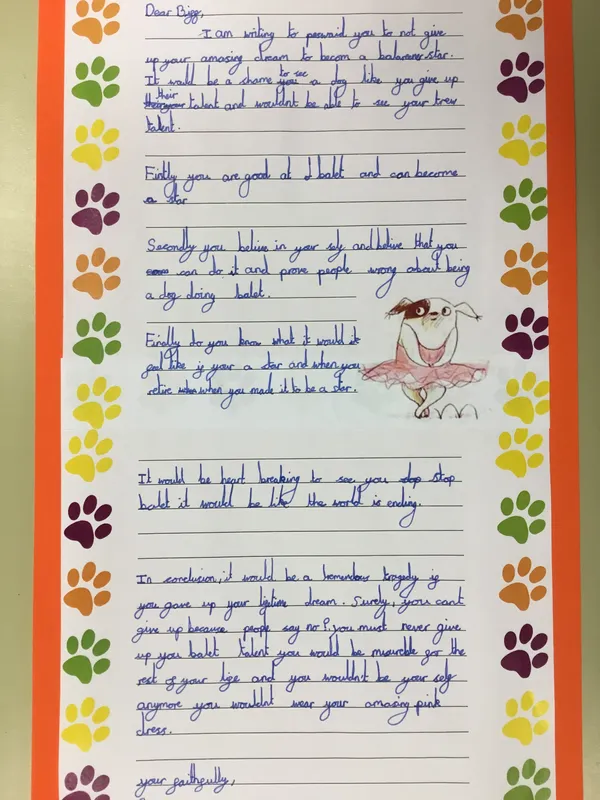 Dear Biff,
I am writing to perswaid you to not give
up your amazing dream to becom a balarena star.
It would be a shame to see a dog like you give up
their talent and wouldnt be able to see your trew
talent.
Firstly you are good at balet and can become
a star
Secondly you belive in your self and belive that you
can do it and prove people wrong about being
a dog doing balet.
Finally do you know what it would it
feel like if your a star and when you
retire when you made it to be a star.
It would be heart breaking to see you stop
balet it would be like the world is ending.
In conclusion, it would be a tremendous tragedy if
you gave up your lifetime dream. Surely, you cant
give up because people say no?, you must never give
up you balet talent you would be misurable for the
rest of your life and you wouldn't be your self
anymore you wouldnt wear your amazing pink
dress.
your faithfully,